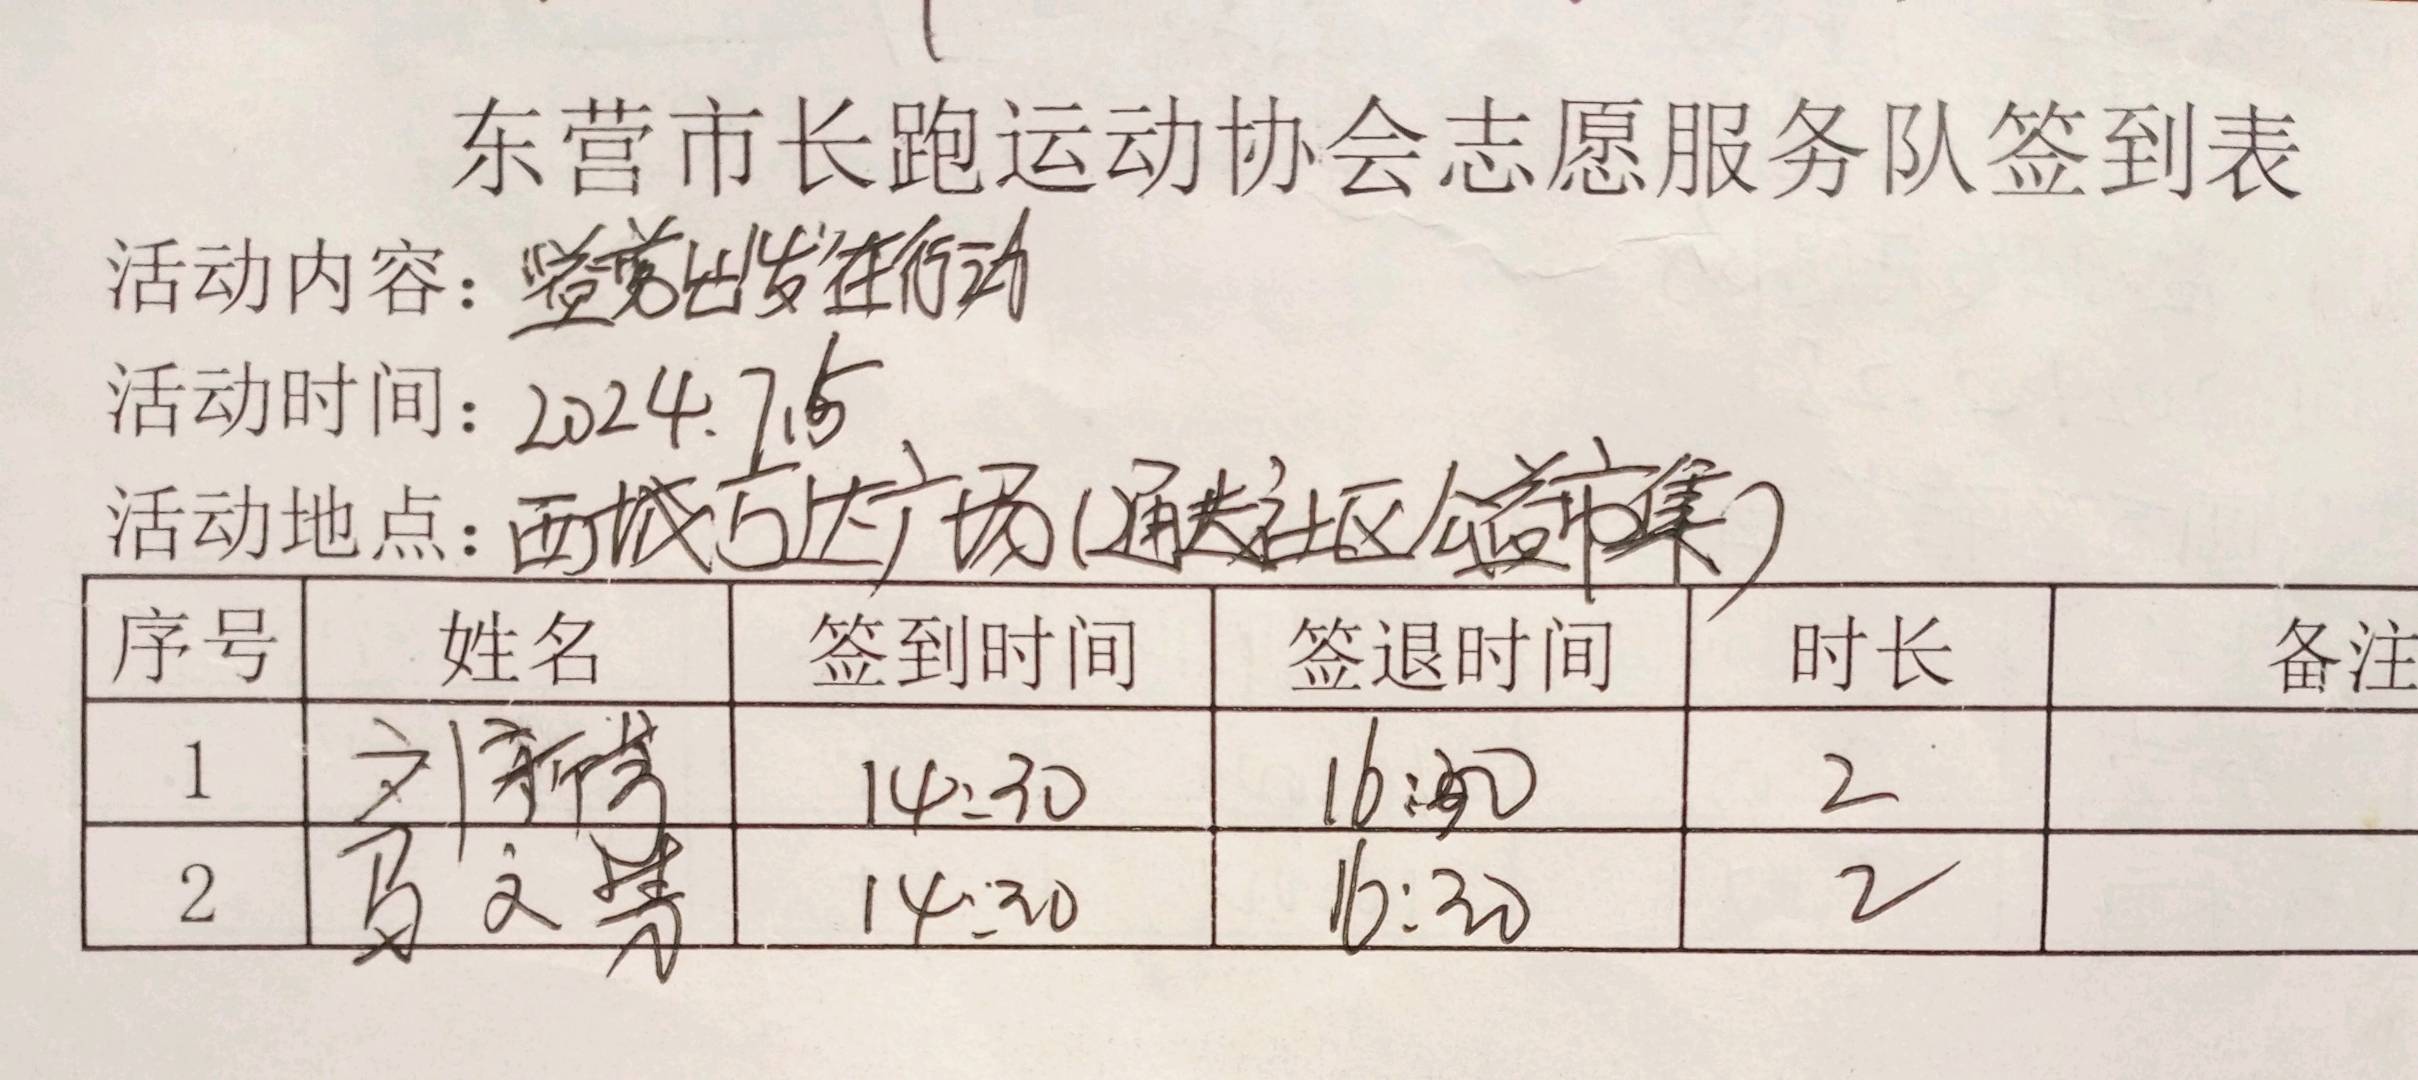 东营市长跑运动协会志愿服务队签到表
活动内容：益剪出发在行动
活动时间：2024.7.15
活动地点：西城万达广场(通达社区公益市集)
序号 姓名 签到时间 签退时间 时长 备注
1 刘新芳 14:30 16:30 2
2 马文 14:30 16:30 2